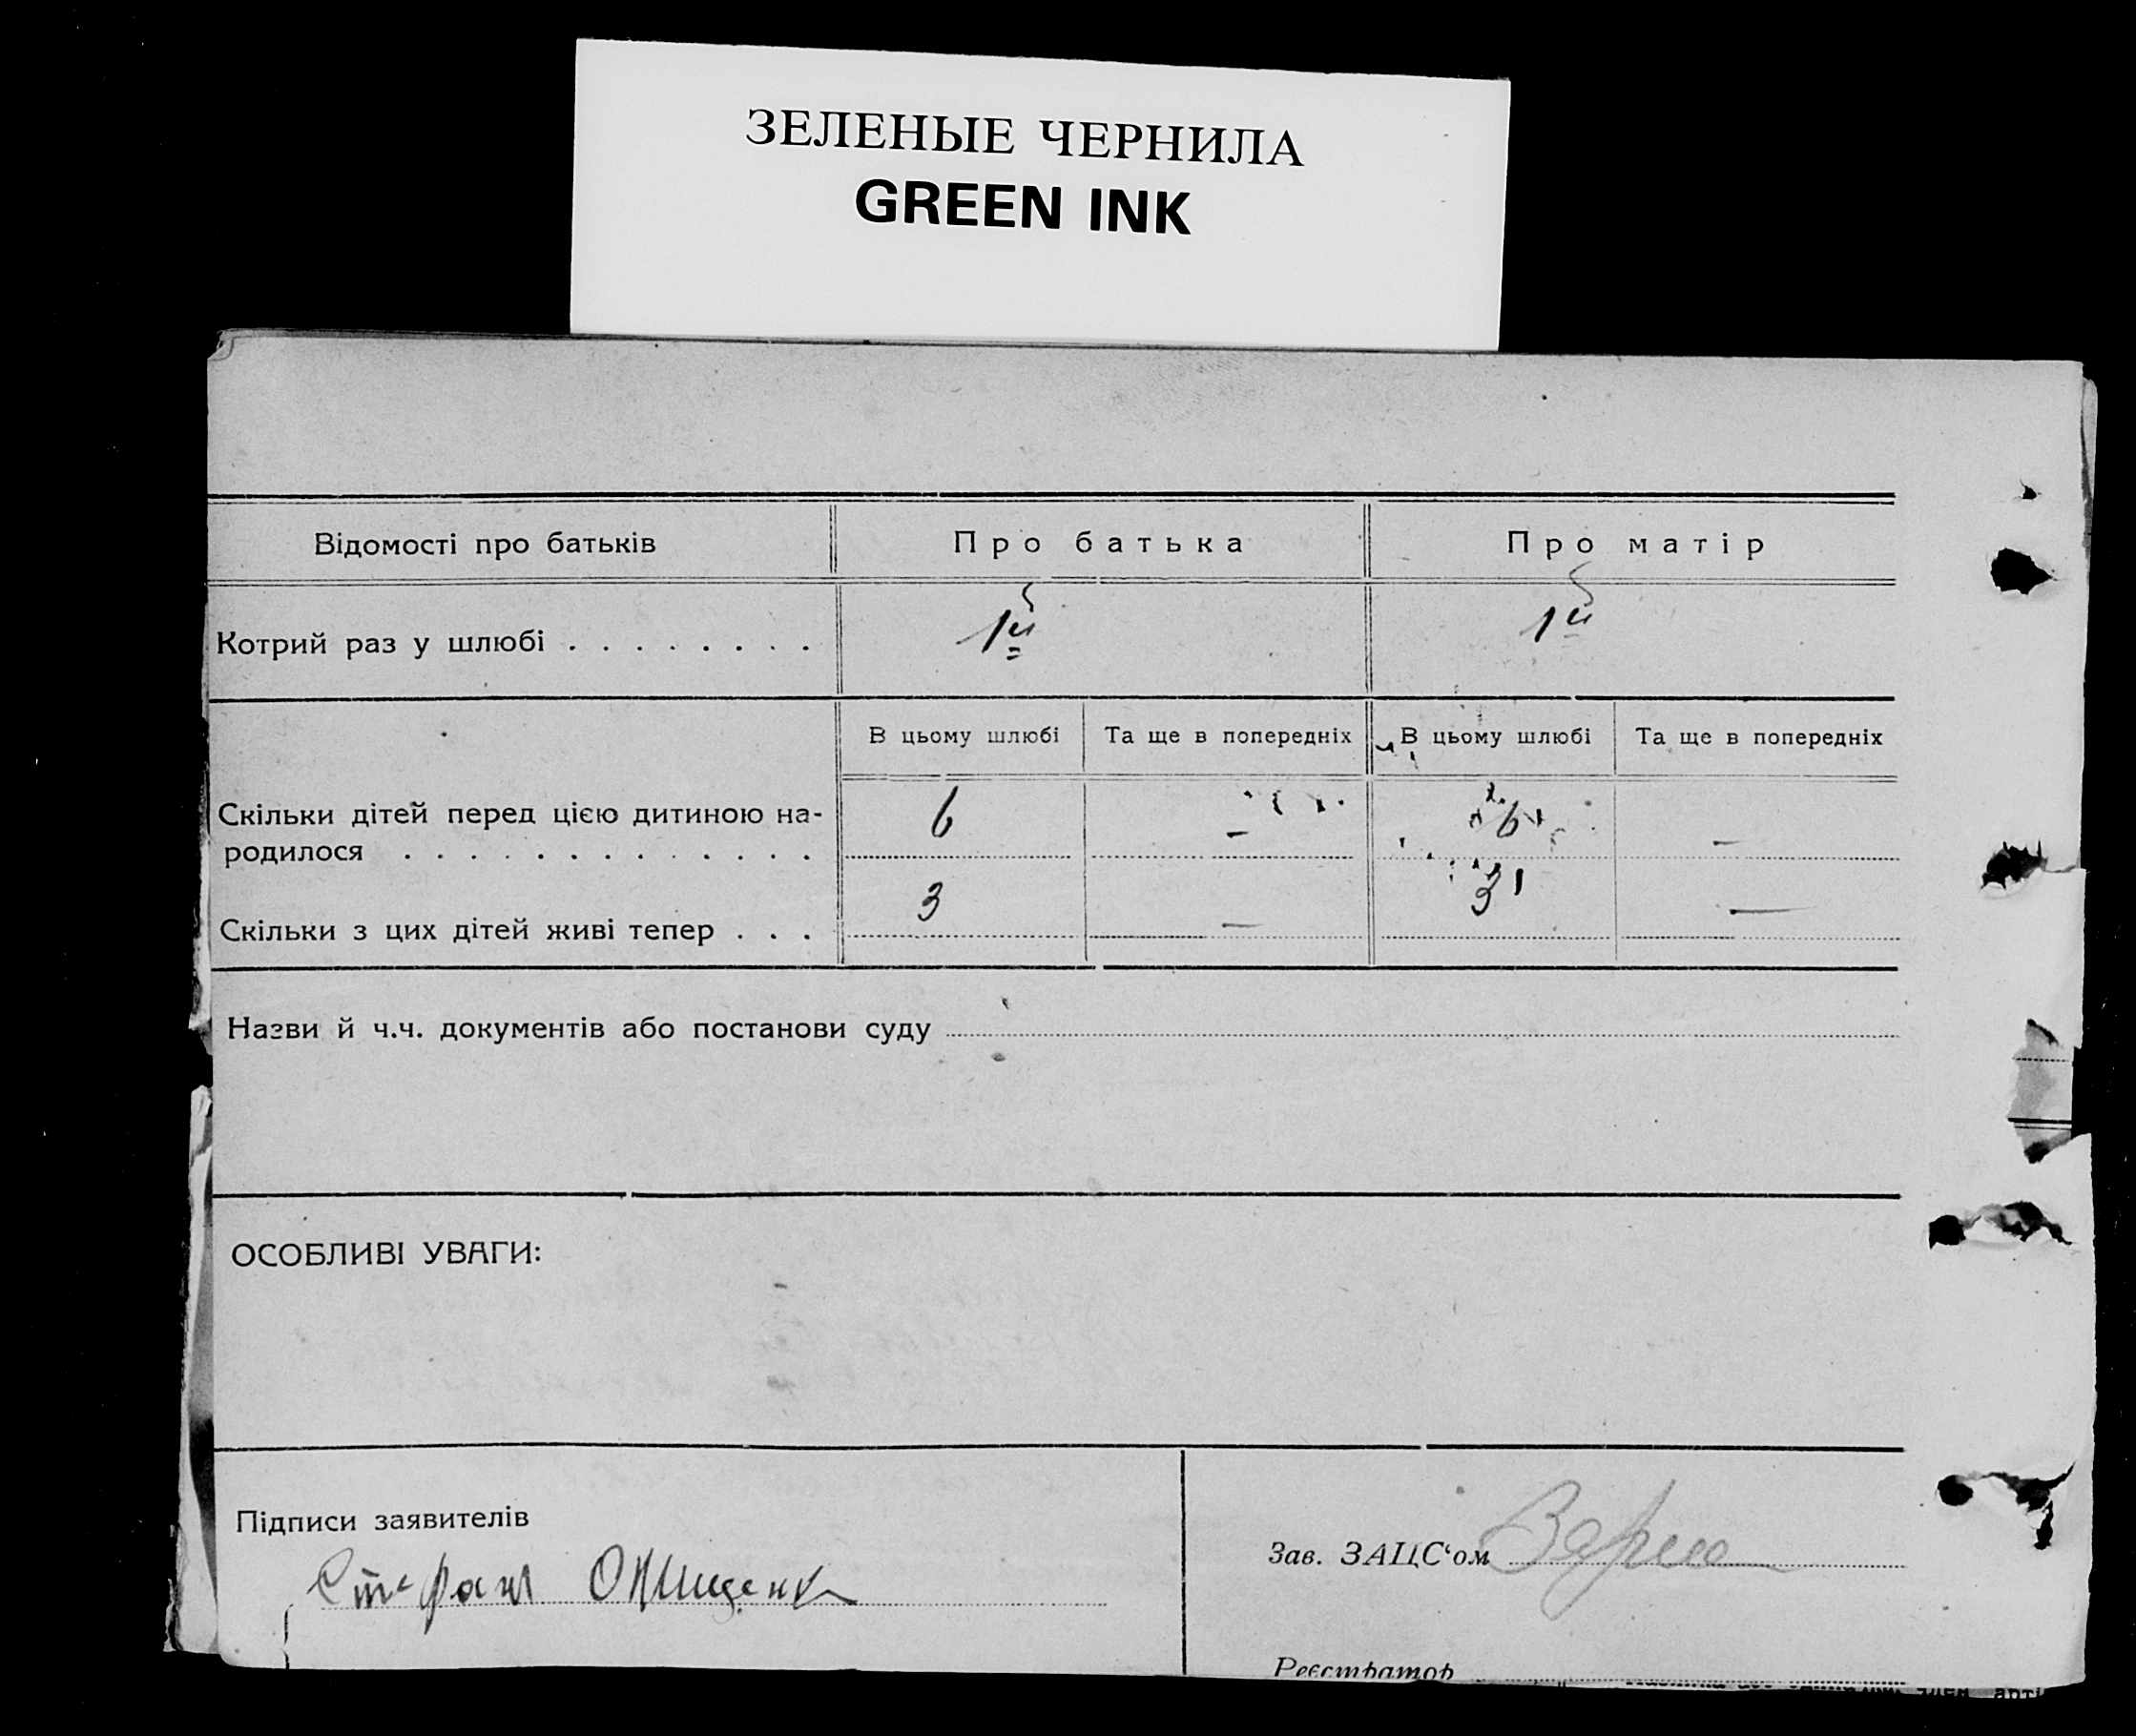 ЗЕЛЕНЫЕ ЧЕРНИЛА
GREEN INK
Відомості про батьків Про батька Про матір
Котрий раз у шлюбі . . . . . . . . 1й 1й
В цьому шлюбі Та ще в попередніх В цьому шлюбі Та ще в попередніх
Скільки дітей перед цією дитиною на-
родилося . . . . . . . . . . . . . 6 – 6 –
Скільки з цих дітей живі тепер . . . 3 — 3 —
Назви й ч.ч. документів або постанови суду
ОСОБЛИВІ УВАГИ:
Підписи заявителів
Стефан Онищенк
Зав. ЗАЦС‘ом
Реєстратор